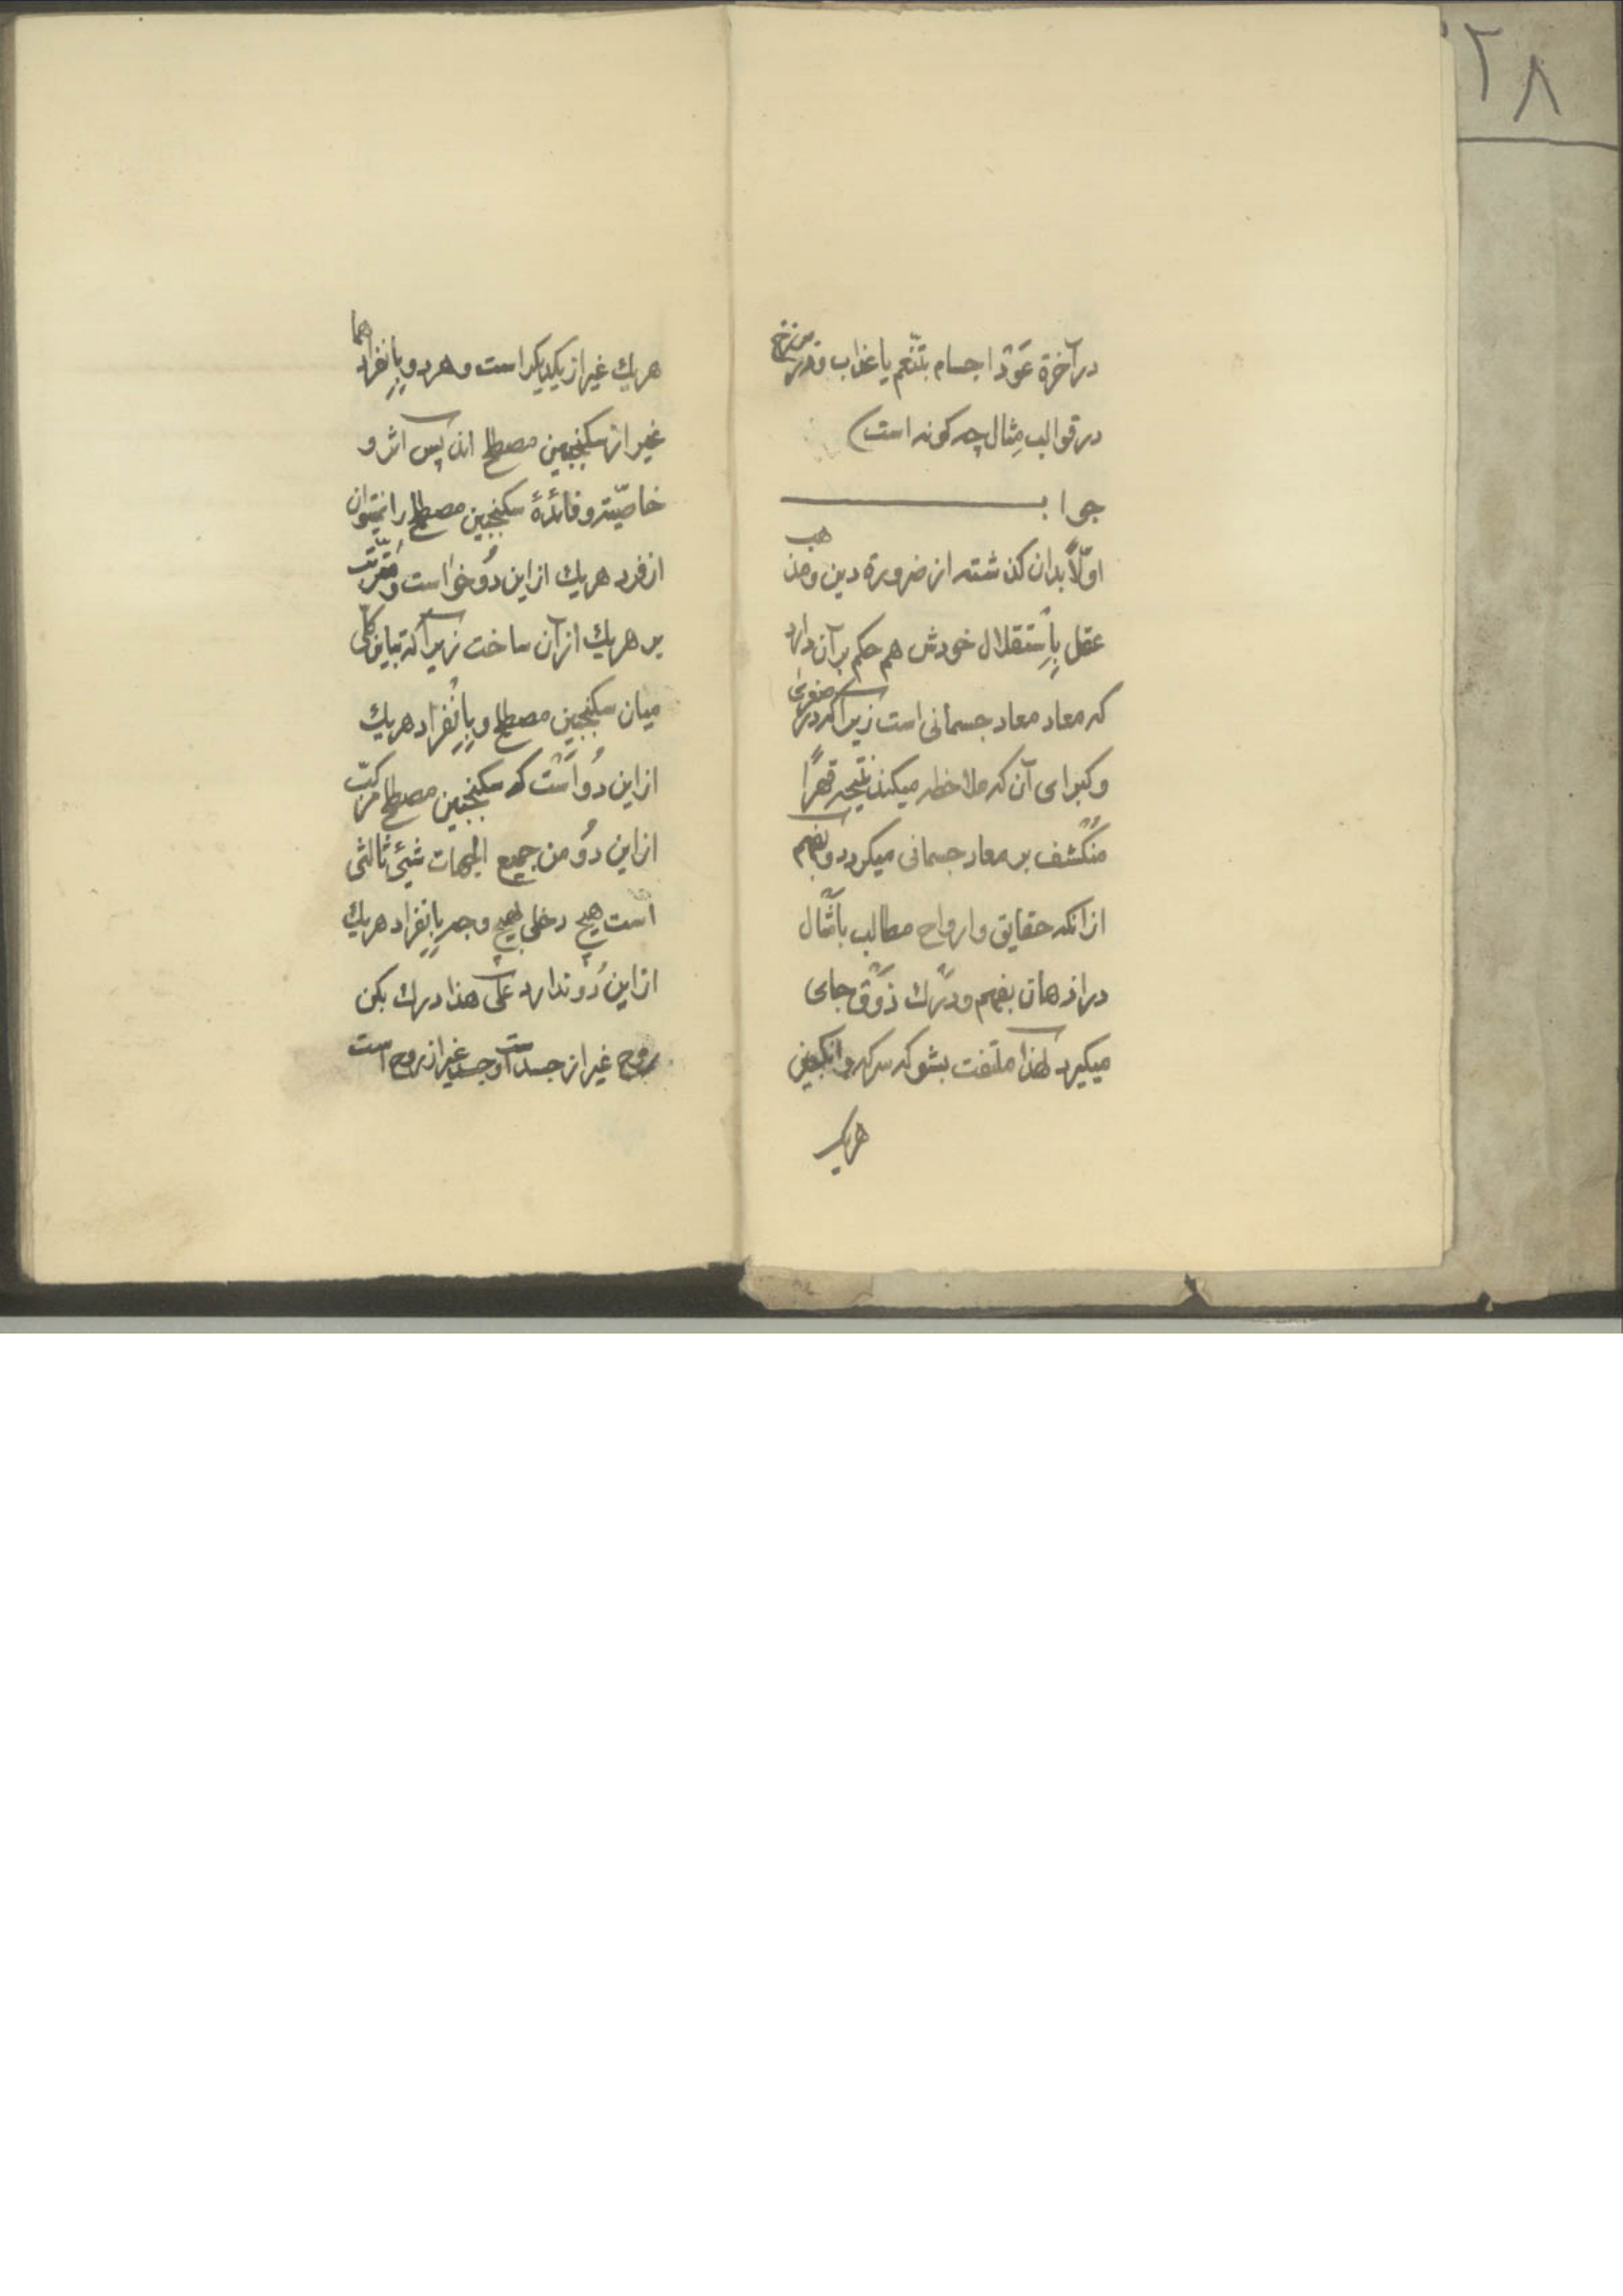 ۲۸
در آخرة عَوْد اجسام بتنّعم یا عذاب و در برزخ
در قوالب مِثال چه کونه است)
جواب
اوّلاً بدان کذشته از ضرورة دین و مذهب
عقل بِاِستقلال خودش هم حکم بر آن دارد
که معاد معاد جسمانی است زیراکه در صغرای
و کبرای آن که ملاحظه میکند نتیجه قهراً
منکشف بر معاد جسمانی میکردد و بفهم
ازانکه حقایق و ارواح مطالب باَمثال
در اذهان بفهم و دَرك ذَوْق جای
میکیرد لهذا ملتفت بشو که سرکه و انکبین
هریک
هریك غیر از یکدیکر است و هردو بِاِنفرادهما
غیر از سکنجبین مصطلح اند پس اثر و
خاصیّته و فائدۀ سکنجبین مصطلح را نمیتوان
از فرد هریك از این دُو خواست و مترتّب
بر هریك از آن ساخت زیراکه تباین کلّی
میان سکنجبین مصطلح و بِاِنفراد هریك
از این دُو اَست که سکنجبین مصطلح مرکّب
از این دُو من جمیع الجهات شیئ ثالثی
است هیچ دخلی بهیچ وجه بِاِنفراد هریك
از این دُو ندارد علی هذا درك بکن
روح غیر از جسد است و جسد غیر از روح است